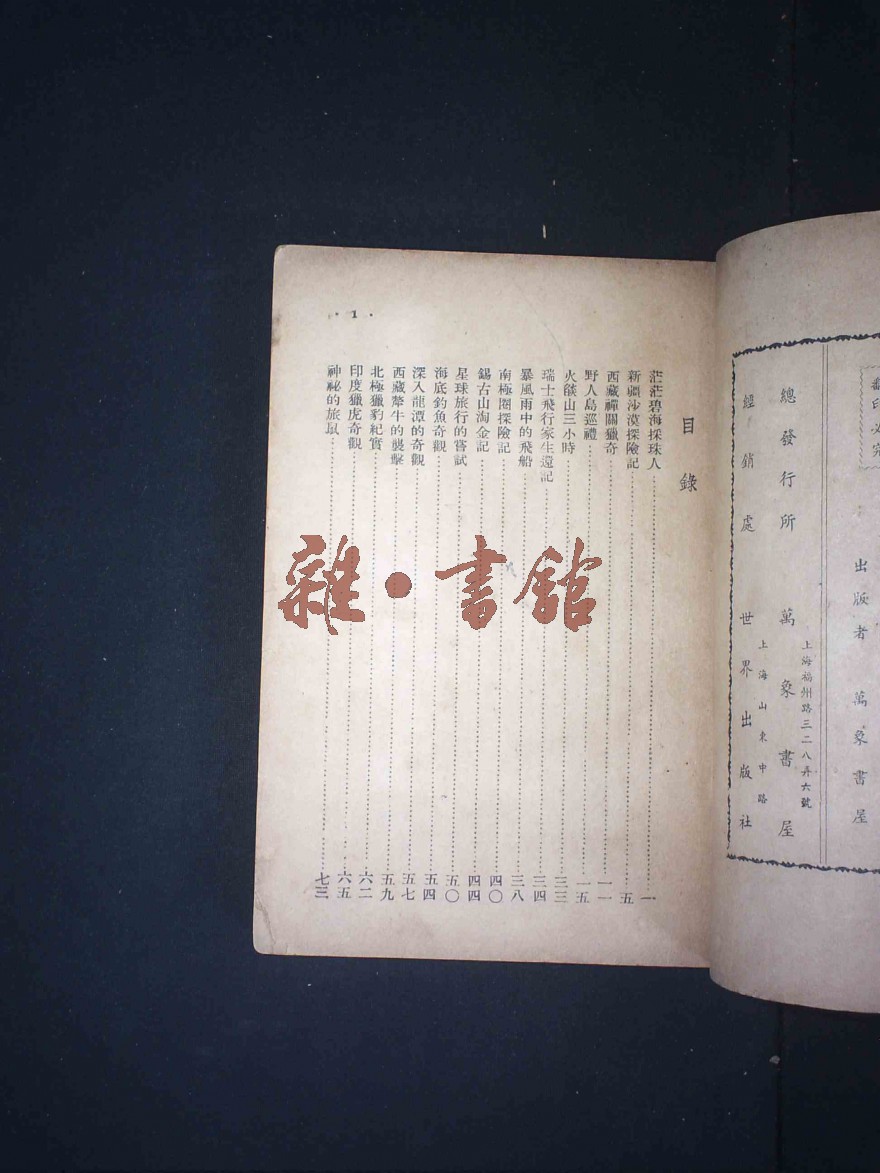 翻印必究
出版者 萬象書屋
上海福州路三二八弄六號
總發行所 萬象書屋
上海山東中路
經銷處 世界出版社
目錄
茫茫碧海採珠人 一
新疆沙漠探險記 五
西藏禪關獵奇 一一
野人島巡禮 一五
火燄山三小時 三三
瑞士飛行家生還記 三四
暴風雨中的飛船 三八
南極圈探險記 四〇
錫古山淘金記 四四
星球旅行的嘗試 五〇
海底釣魚奇觀 五四
深入龍潭的奇觀 五七
西藏犛牛的襲擊 五九
北極獵豹紀實 六二
印度獵虎奇觀 六五
神祕的旅鼠 七三
·1·
雜·書館